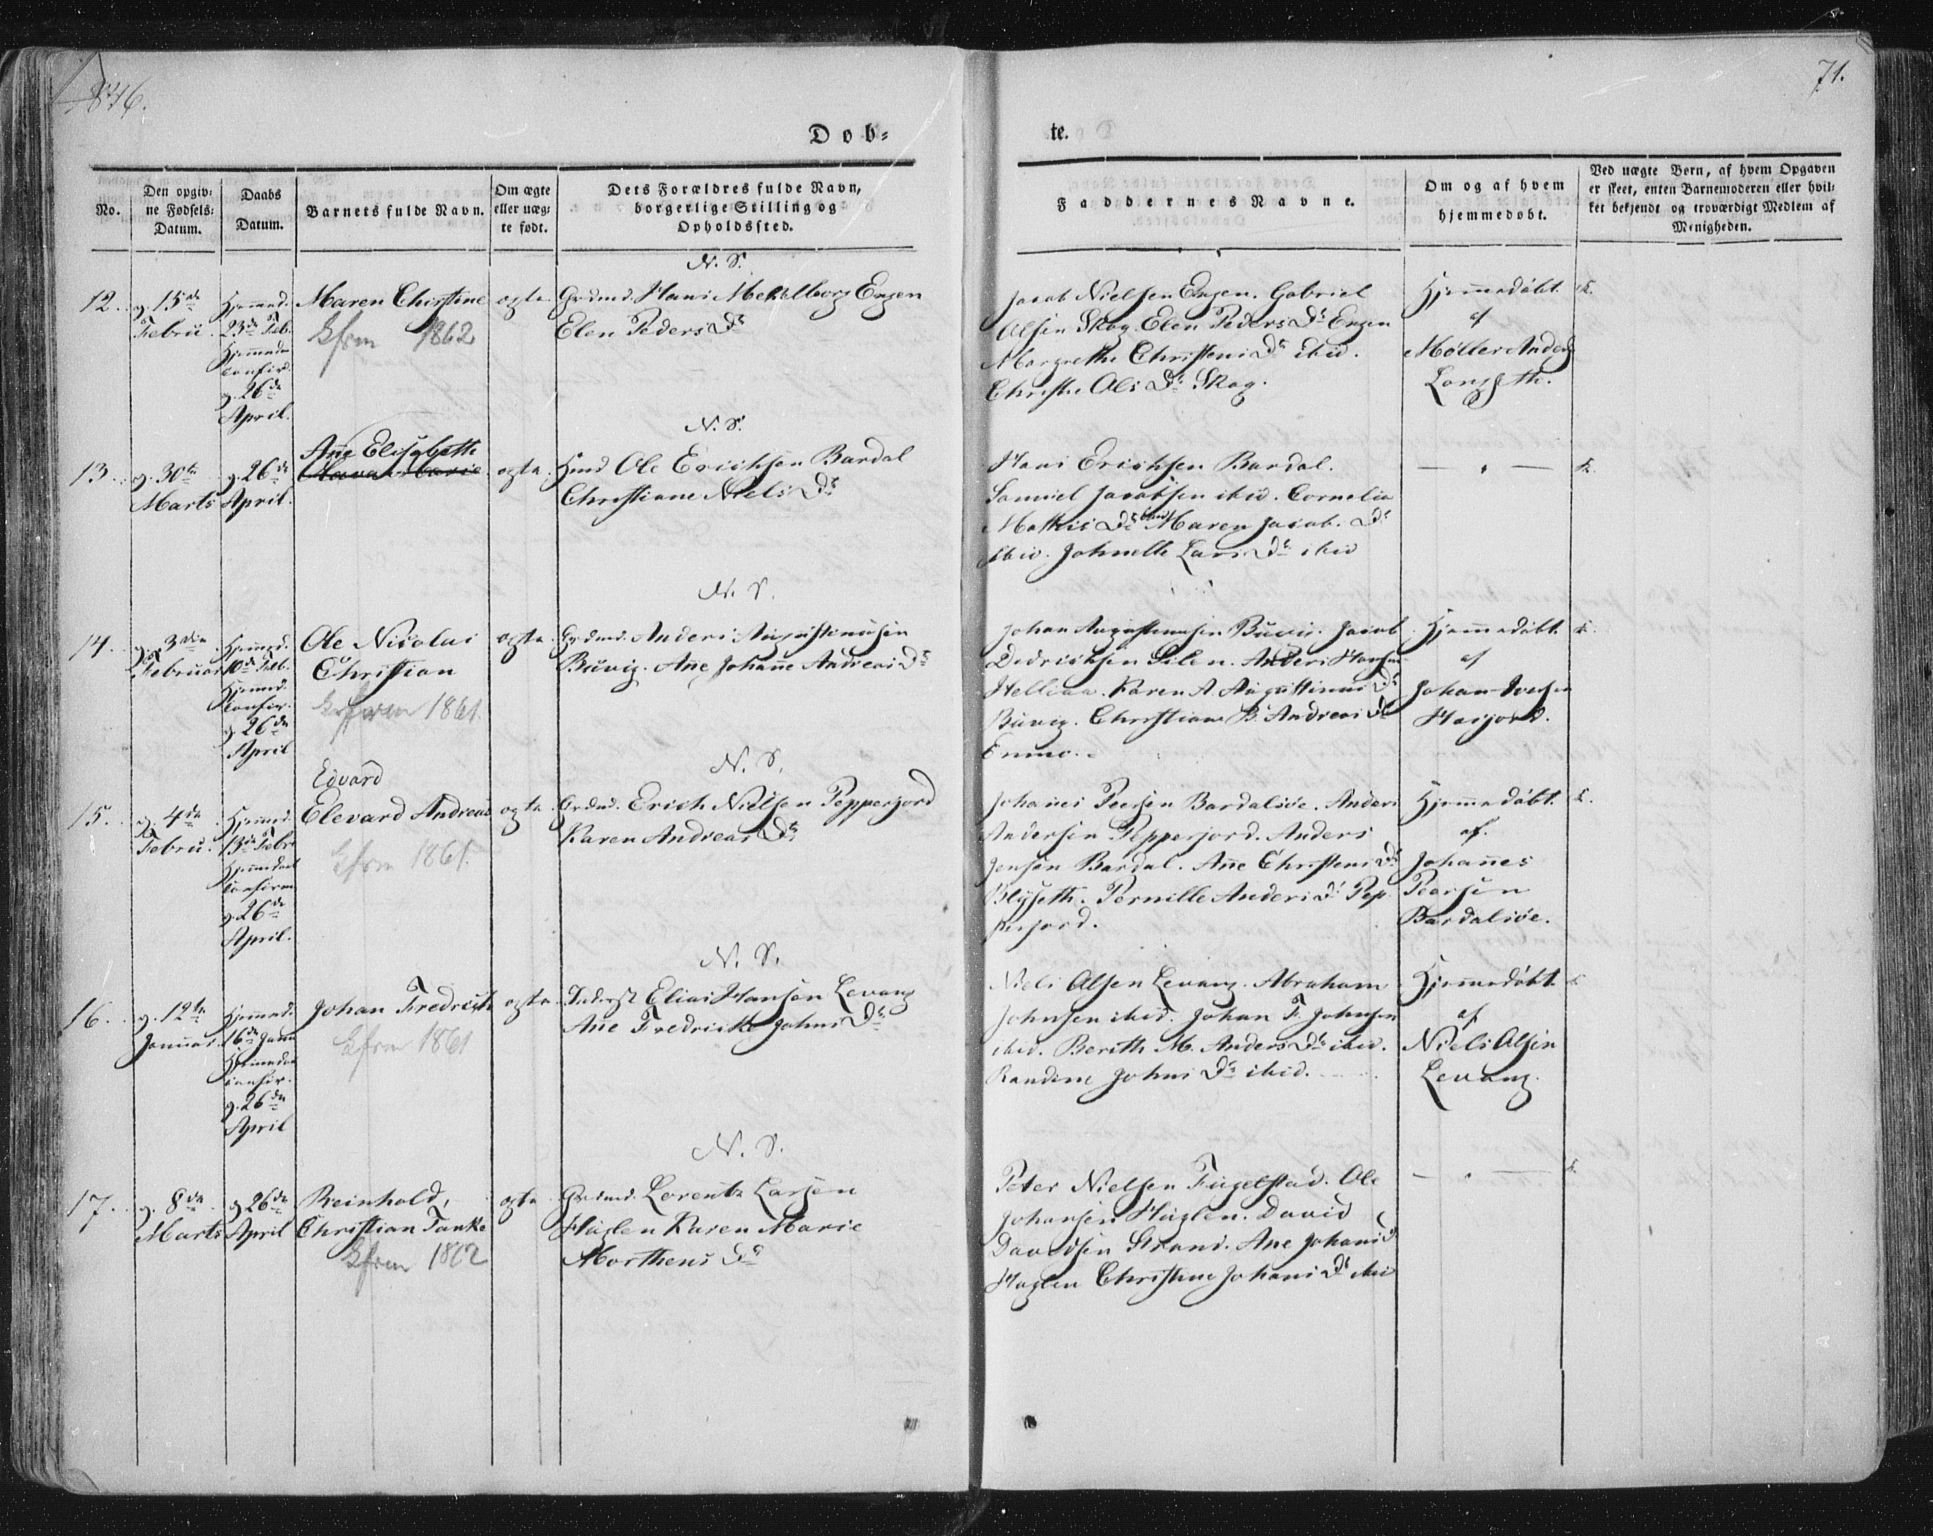 1846.
71.
Døb-
te.
No.
Den opgiv-
ne Fødsels-
Datum.
Daabs
Datum.
Barnets fulde Navn.
Om ægte
eller uæg-
te født.
Dets Forældres fulde Navn,
borgerlige Stilling og
Opholdssted.
Faddernes Navne.
Om og af hvem
hjemmedøbt.
Ved uægte Børn, af hvem Opgaven
er skeet, enten Barnemoderen eller hvil-
ket bekjendt og troværdigt Medlem af
Menigheden.
N. S.
12.
g. 15de
Febru.
Hjemmed.
23de Feb.
Hjemmeda
confir.
g. 26de
April.
Maren Christine
Kfrm 1862
ægte.
Grdmd. Hans Mehlborg Engen
Elen Peders Dr
Jacob Nielsen Engen. Gabriel
Olsen Skog. Elen Peders Dr Engen
Margrethe Christens Dr ibid.
Christine Ols Dr Skog.
Hjemmedøbt
af
Møller Anders
Langseth.
N. S.
13.
g. 30te
Marts
g. 26de
April.
Ane Elisabeth
ægte.
Hmd Ole Erichsen Bardal
Christiane Niels Dr
Hans Erichsen Bardal.
Samuel Jacobsen ibid. Cornelia
Mathis Dr ibid Maren Jacob. Dr
ibid. Johnelle Lars Dr ibid
N. S.
14.
g. 3die
Februar
Hjemmed.
10de Feb.
Hjemmed.
confir.
g. 26de
April
Ole Nicolai
Christian
Kfrm 1861.
ægte.
Grdmd. Anders Augustinusen
Buvig. Ane Johanne Andreas Dr
Johan Augustinusen Buvig. Jacob
Dedrichsen Silen. Anders Hansen
Helliaa. Karen A Augustinus Dr
Buvig. Christiane B. Andreas Dr
Hjemmedøbt.
af
Johan Iversen
N. S.
15.
g. 4de
Febru.
Hjemmed.
13de Febr
Hjemmedaab
confirm
g. 26de
April.
Edvard
Elevard Andreas
Kfrm 1861.
ægte
Grdmd. Erich Nielsen Pepperjord
Karen Andreas Dr
Johanes Peersen Bardalsøe. Anders
Andersen Pepperjord. Anders
Jensen Bardal. Ane Christens Dr
Blyseth. Pernille Anders Dr Pep-
perjord.
Hjemmedøbt.
af.
Johannes
Peersen
Bardalsøe.
N. S.
16.
g. 12te
Januar.
Hjemmed.
16de Janu
Hjemmeda
confir.
g. 26de
April
Johan Fredrich
Kfrm 1861
ægte.
Inderst Elias Hansen Levang
Ane Fredrikke Johns Dr
Niels Olsen Levang. Abraham
Johnsen ibid. Johan F. Johnsen
ibid. Berith M. Anders Dr ibid.
Randine Johns Dr ibid.
Hjemmedøbt.
af
Niels Olsen
Levang.
N. S.
17.
g. 8de
Marts
g. 26de
April
Reinhold,
Christian Tanke
Kfrm 1862
ægte
Grdmd. Lorentz Larsen
Haglen Karen Marie
Morthens Dr
Peter Nielsen Fugelstad. Ole
Johansen Haglen. David
Davidsen Strand. Ane Johans Dr
Haglen Christine Johans Dr ibid